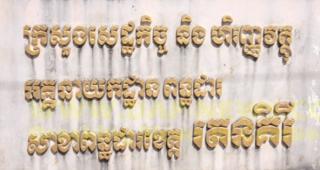 ក្រសួងសេដ្ឋកិច្ច និង ហិរញ្ញវត្ថុ
អគ្គនាយកដ្ឋាន ពន្ធដារ
សាខាពន្ធដារខេត្ត រតនគិរី